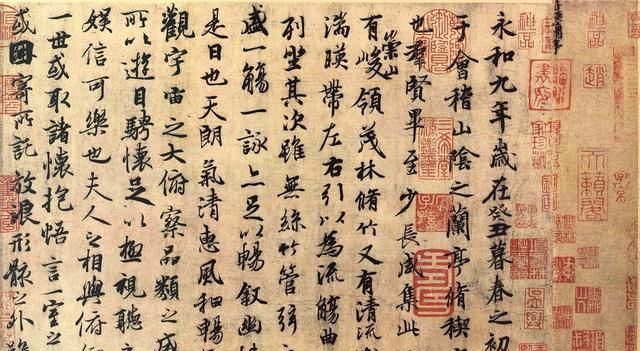 永和九年歲在癸丑暮春之初
于會稽山陰之蘭亭脩稧
也羣賢畢至少長咸集此
有崇山峻領茂林脩竹又有清流
湍暎帶左右引以為流觴曲
列坐其次雖無絲竹管弦
盛一觴一詠亦足以暢叙幽
是日也天朗氣清惠風和暢
觀宇宙之大俯察品類之盛
所以遊目騁懷足以極視聽
娛信可樂也夫人之相與俯
一世或取諸懷抱悟言一室之
或因寄所託放浪形骸之外
天籟閣